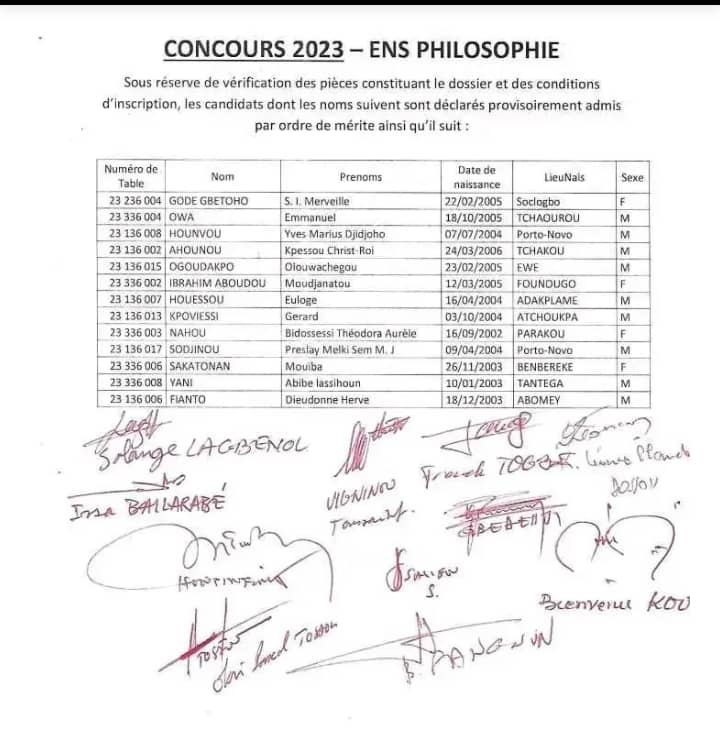 CONCOURS 2023 – ENS PHILOSOPHIE
Sous réserve de vérification des pièces constituant le dossier et des conditions
d'inscription, les candidats dont les noms suivent sont déclarés provisoirement admis
par ordre de mérite ainsi qu'il suit :
Numéro de Table Nom Prenoms Date de naissance LieuNais Sexe
23 236 004 GODE GBETOHO S. I. Merveille 22/02/2005 Soclogbo F
23 336 004 OWA Emmanuel 18/10/2005 TCHAOUROU M
23 136 008 HOUNVOU Yves Marius Djidjoho 07/07/2004 Porto-Novo M
23 136 002 AHOUNOU Kpessou Christ-Roi 24/03/2006 TCHAKOU M
23 136 015 OGOUDAKPO Olouwachegou 23/02/2005 EWE M
23 336 002 IBRAHIM ABOUDOU Moudjanatou 12/03/2005 FOUNDUGO F
23 136 007 HOUESSOU Euloge 16/04/2004 ADAKPLAME M
23 136 013 KPOVIESSI Gerard 03/10/2004 ATCHOUKPA M
23 336 003 NAHOU Bidossessi Théodora Aurèle 16/09/2002 PARAKOU F
23 136 017 SODJINOU Preslay Melki Sem M. J 09/04/2004 Porto-Novo M
23 336 006 SAKATONAN Mouiba 26/11/2003 BENBEREKE F
23 336 008 YANI Abibe Iassihoun 10/01/2003 TANTEGA M
23 136 006 FIANTO Dieudonne Herve 18/12/2003 ABOMEY M
Solange LAGBENOL
Franck
Issa BALLARABÉ
VIGNINOU
Toussaint
S.
Bienvenu KOU
TOSSOU